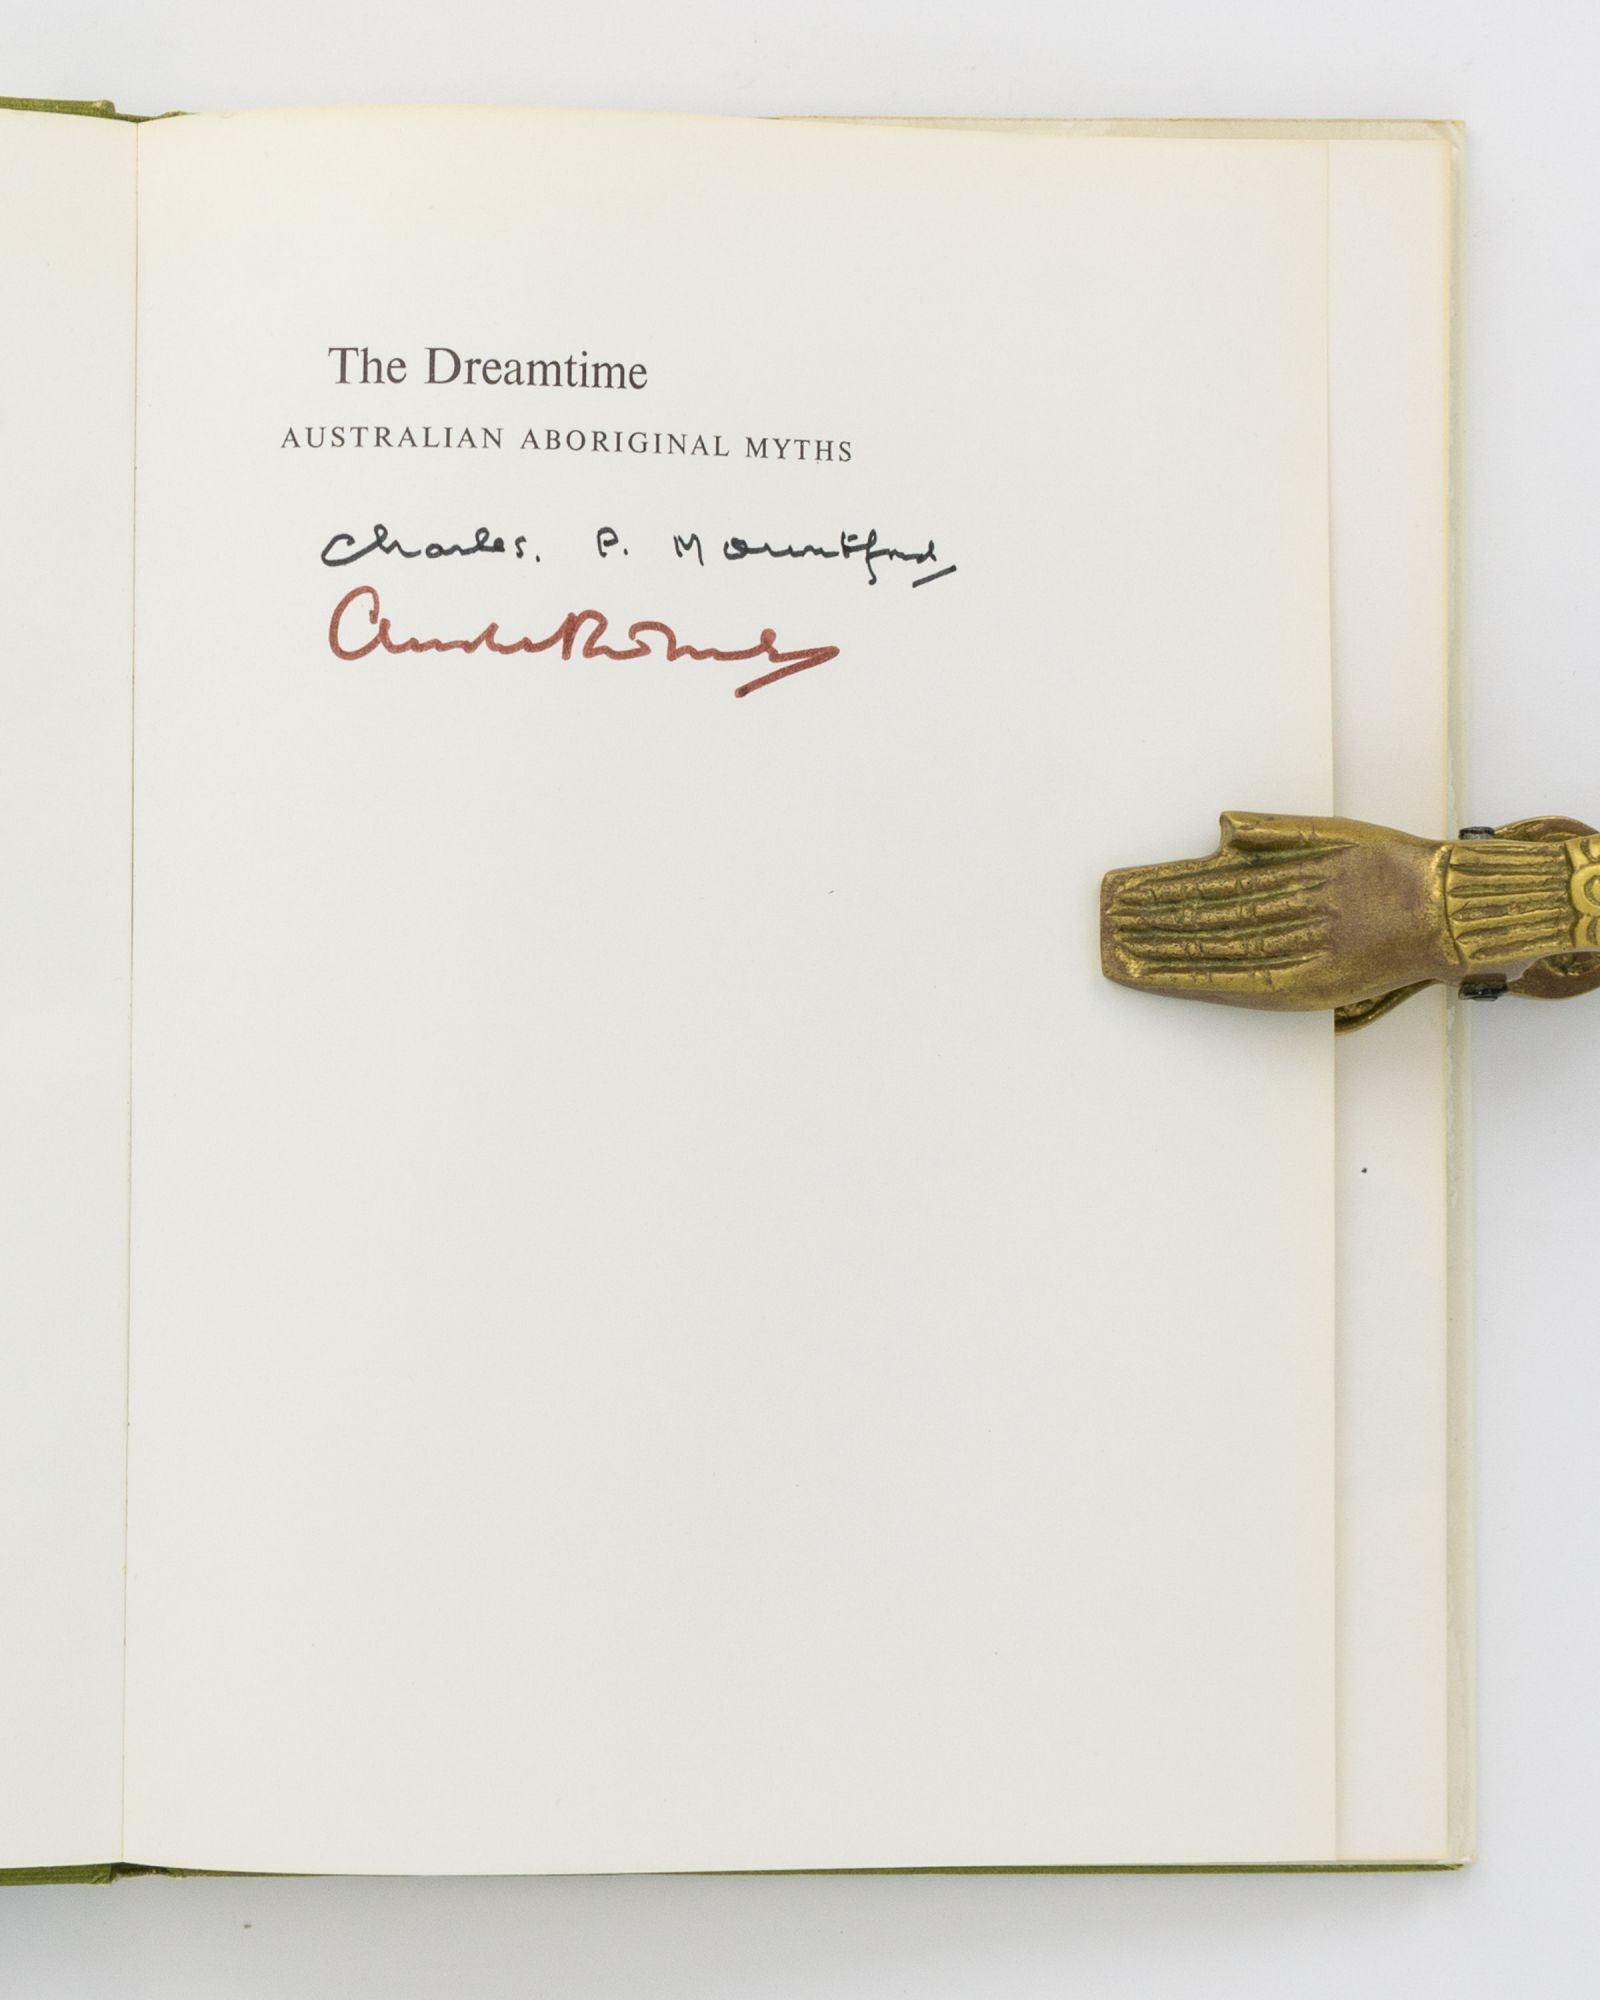 The Dreamtime
AUSTRALIAN ABORIGINAL MYTHS
Charles. P. Mountford